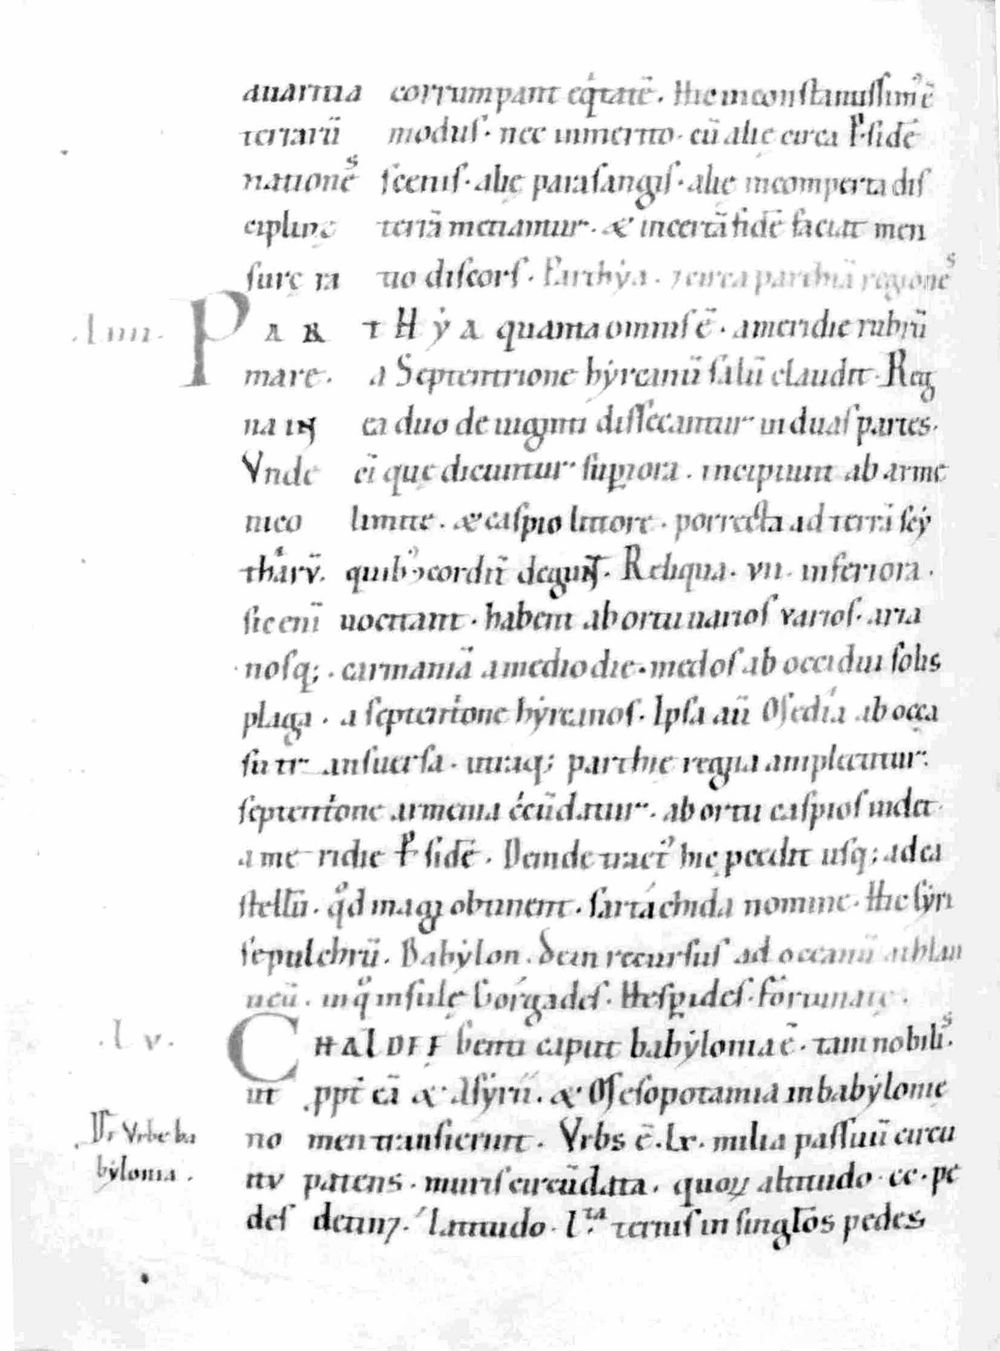 auaritia corrumpant eq̇tatē. Hic inconstantissim᾽ ē
terrarū modus. nec inmerito. cū alie circa P̄sidē
natione^s scenis. alię parasangis. alię incomperta dis
ciplinę terrā metiantur. & incertā fidē faciat men
surę ra tio discors. Parthẏa. ⁊ circa parthiā regione^s
.Liiii. PARTHẎA quanta omnis ē. a meridie rubrū
mare. a Septemtrione hẏrcanū salū claudit. Reg
na IN ea duo de uiginti dissecantur in duas partes.
Vnde ci que dicuntur supiora. incipiunt ab arme
nico limite. & caspio littore. porrecta ad terrā scẏ
tharū. quib᾽ ɔcordit̄ degunt. Reliqua. vii. inferiora.
sic enī uocitant. habent ab ortu uarios varios. aria
nosq;. carmaniā a medio die. medos ab occidui solis
plaga. a septemtione hẏrcanos. Ipsa aū Media ab occa
su tr ansuersa. utraq; parthie regna amplectitur.
septemtione armenia ccūdatur. ab ortu caspios uidet.
a me ridie P̄sidē. Deinde tract᾽ hic pcedit usq; ad ca
stellū. qd̊ magi obtinent. sartachida nomine. Hic sẏri
sepulchrū. Babẏlon. dein recursus ad occanū athlan
ticū. inq̊ insulę Gorgades. Hespides. Fortunatę.
.Lv. CHALDEE genti caput babẏlonia ē. tam nobili^s.
ut ppt̄ eā & Assẏrii. & Mesopotamia in babẏlonie
Dr̄ Vrbe ba
bẏlonia.
no men transierunt. Vrbs ē. Lx. milia passuū circu
itv patens. muris circūdata. quoꝝ altitudo. cc. pe
des detin⁊. latitudo. L.^ta ternis in singlōs pedes